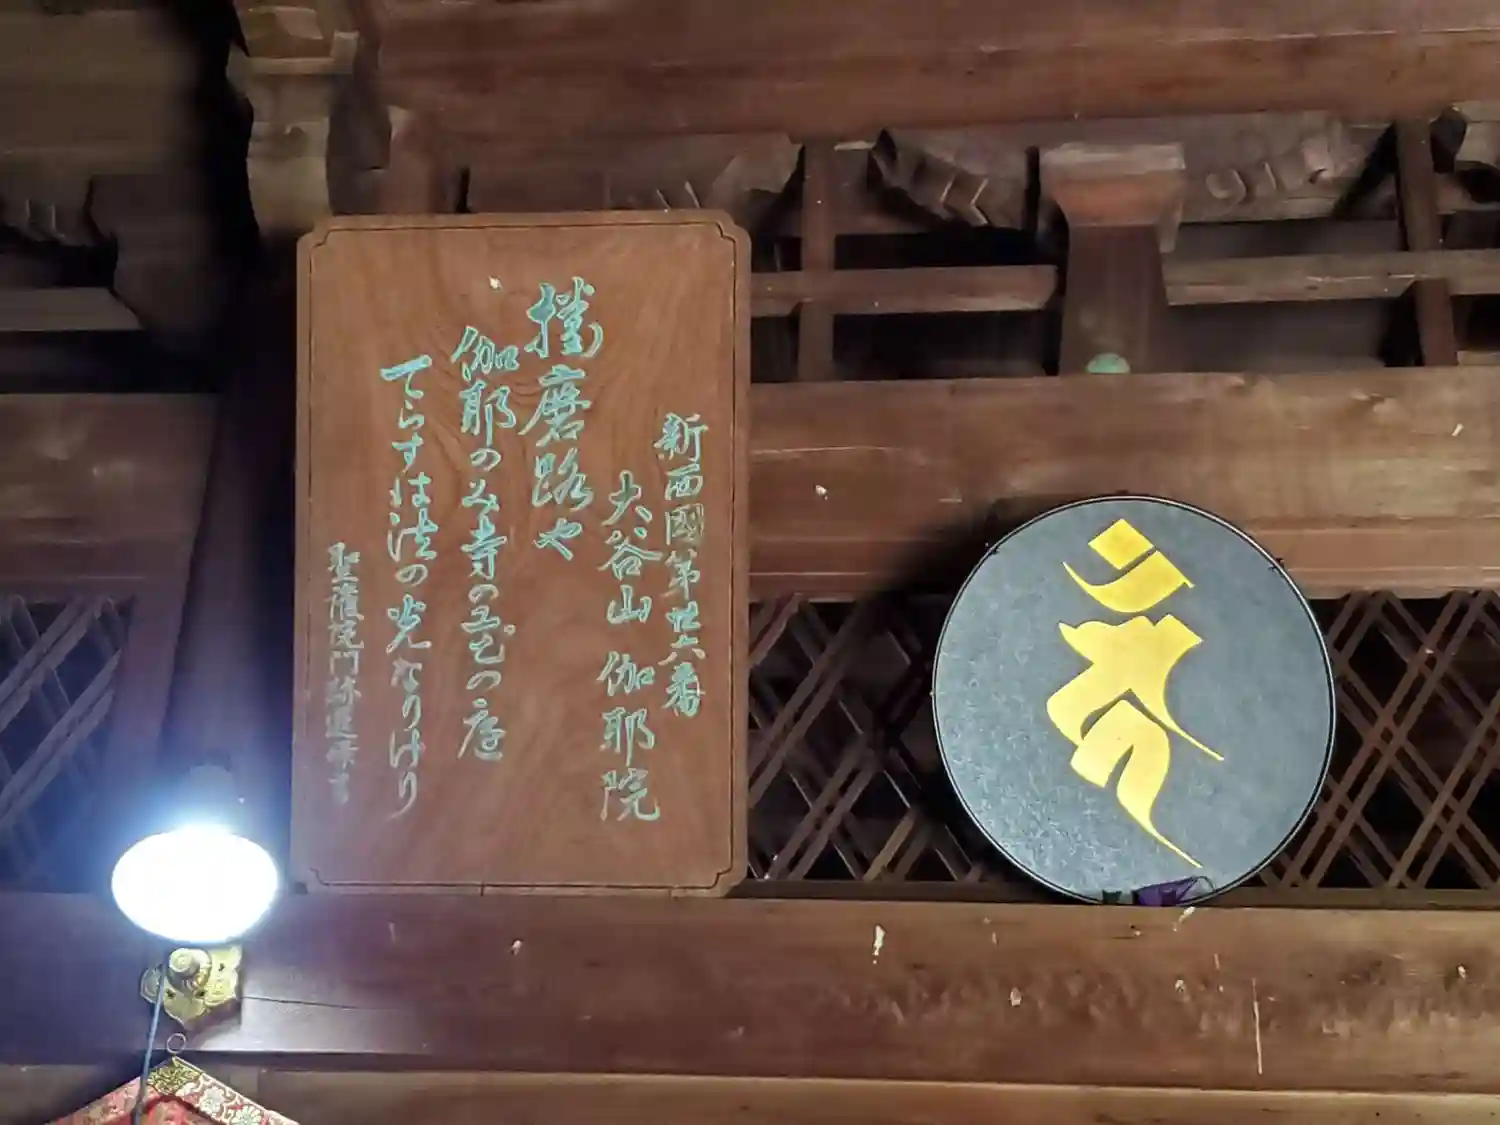 新西國第廿六番
大谷山 伽耶院
播磨路や
伽耶のみ寺の の庭
てらすは法の光なりけり
聖護院門跡